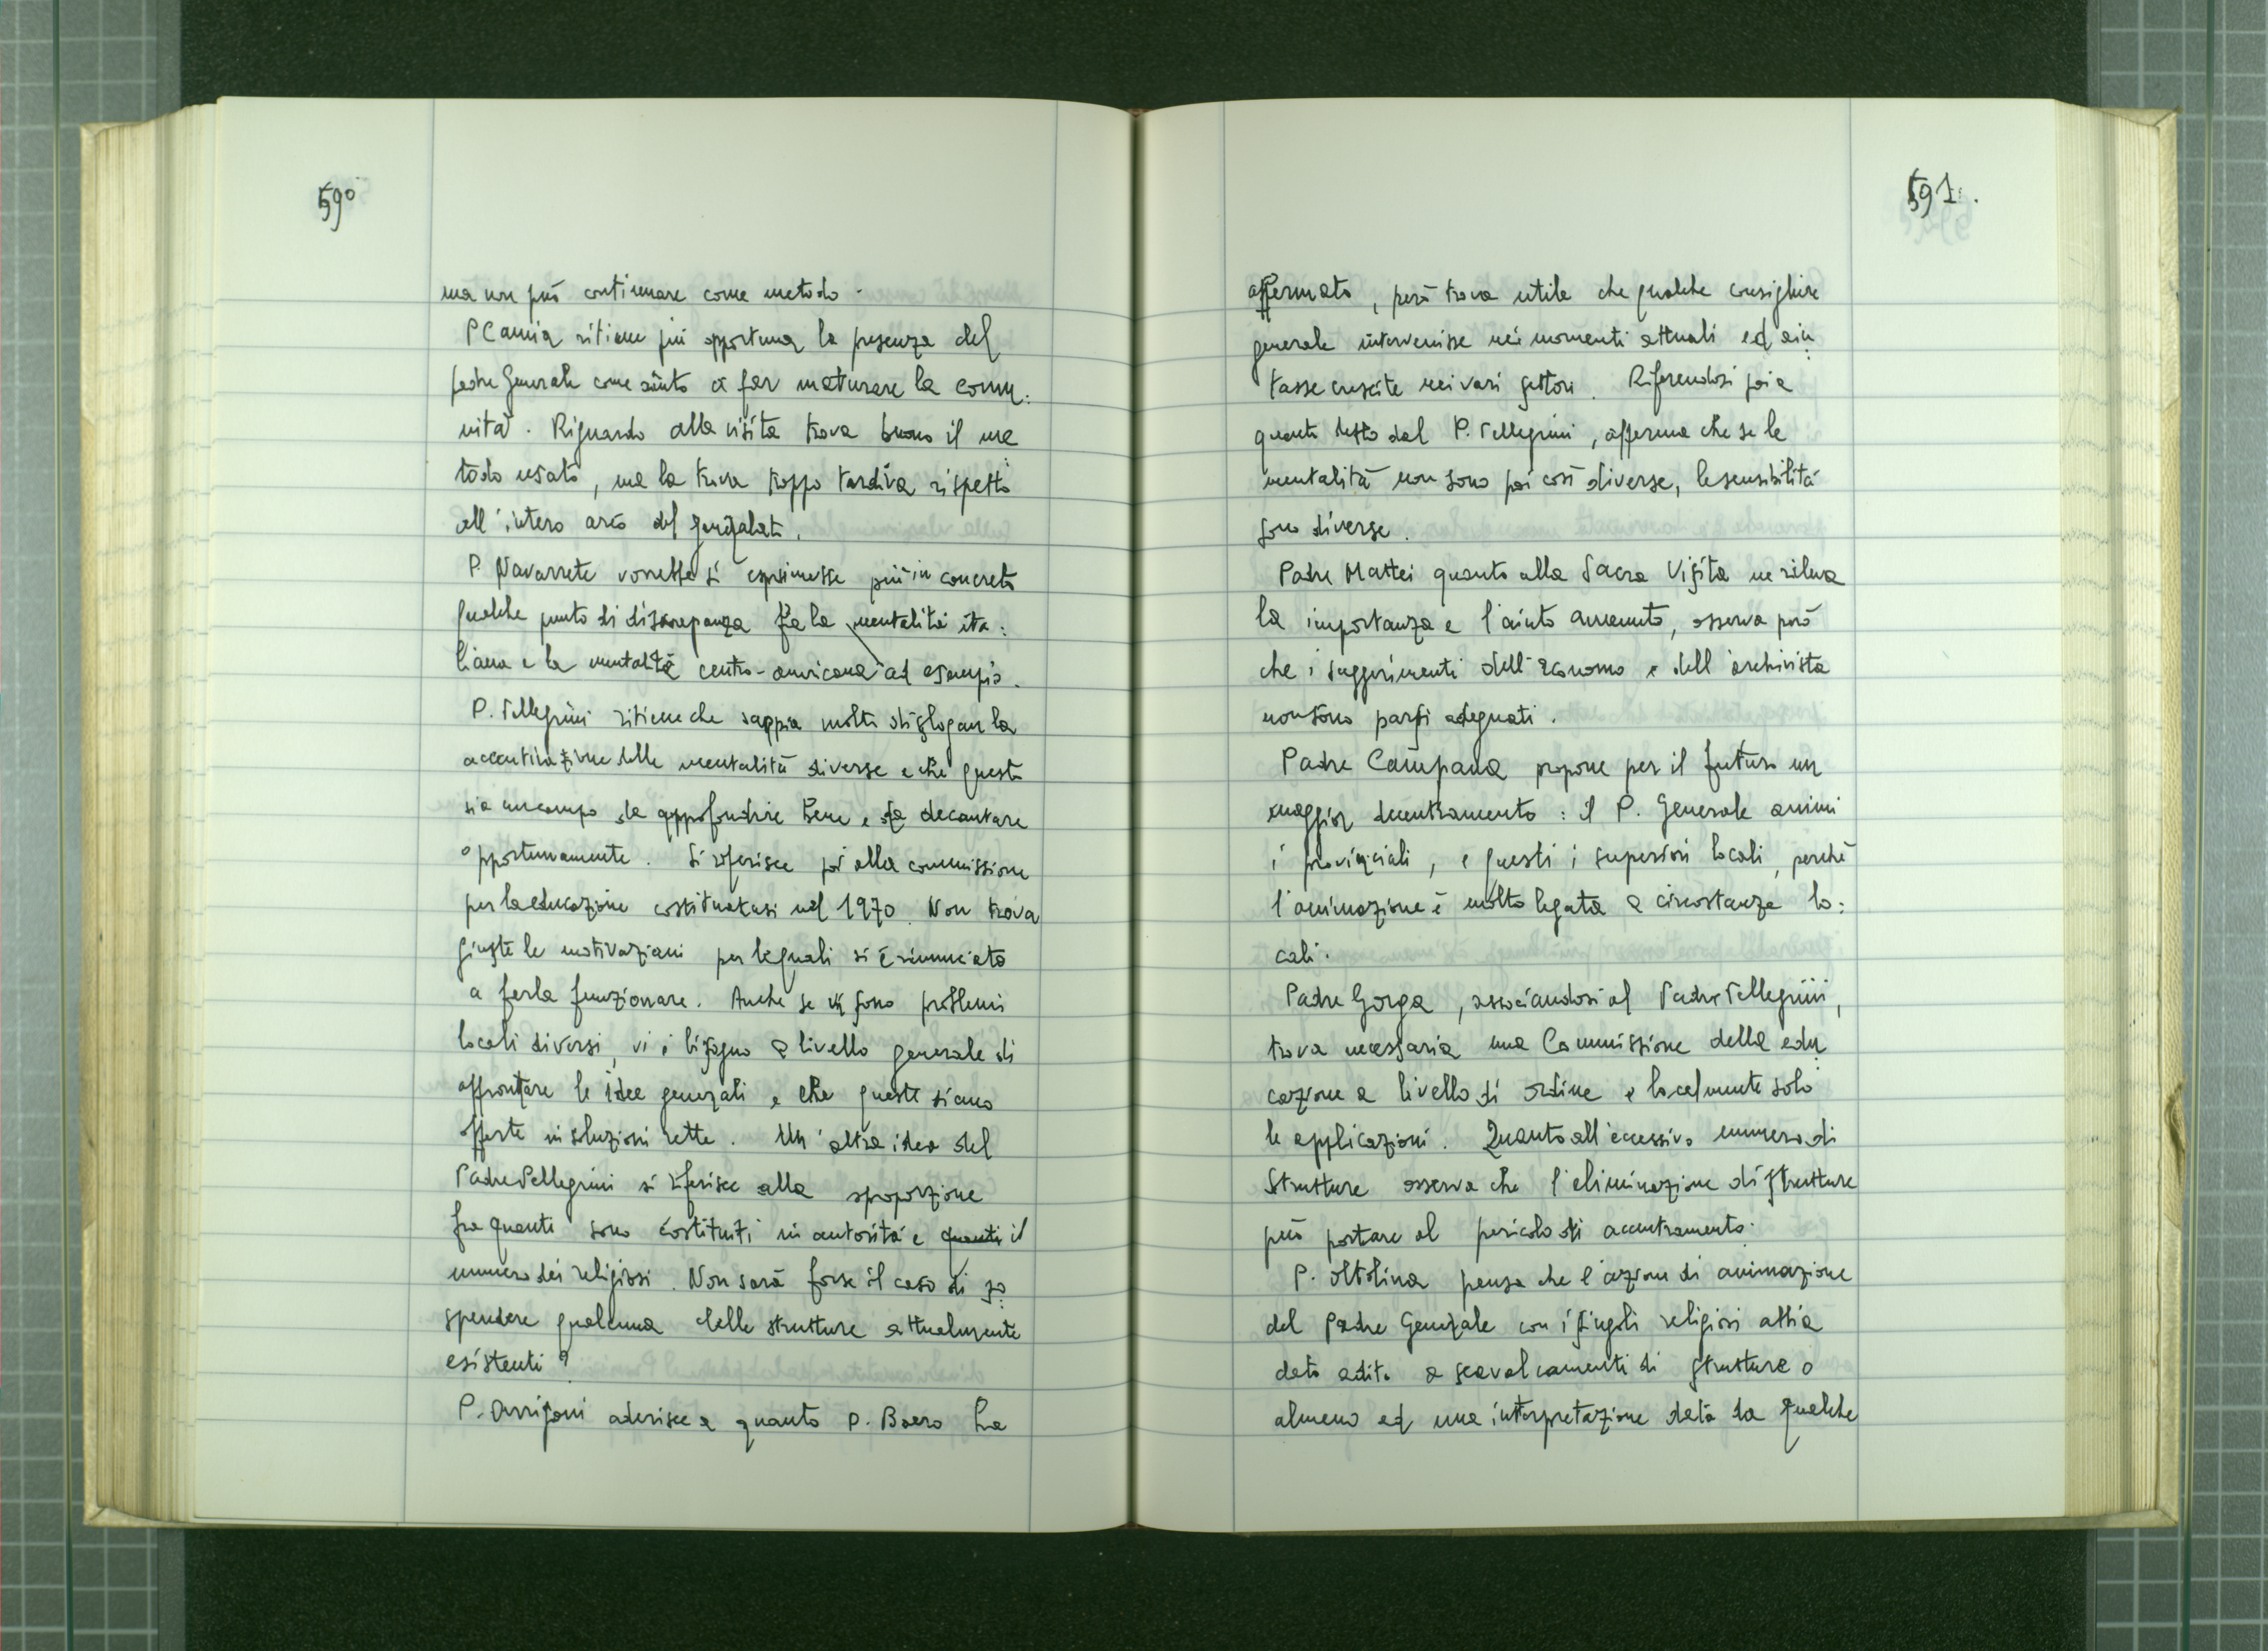 590
ma non può continuare come metodo.
P Camia ritiene più opportuna la presenza del
padre Generale come aiuto a far maturare la comu:
nità. Riguardo alla visita trova buono il me:
todo usato, ma la trova troppo tardiva rispetto
all'intero arco del generalato.
P. Navarrete vorrebbe si esprimesse più in concreto
qualche punto di discrepanza fra la mentalità ita:
liana e la mentalità centro-americana ad esempio.
P. Pellegrini ritiene che sappia molto di slogan la
accentuazione delle mentalità diverse e che questo
sia un campo da approfondire bene e da decantare
opportunamente. Si riferisce poi alla commissione
per la educazione costituitasi nel 1970. Non trova
giuste le motivazioni per le quali si è rinunciato
a farla funzionare. Anche se vi sono problemi
locali diversi, vi è bisogno a livello generale di
affrontare le idee generali e che queste siano
offerte in soluzioni rette. Un'altra idea del
Padre Pellegrini si riferisce alla sproporzione
fra quanti sono costituiti in autorità e quanti il
numero dei religiosi. Non sarà forse il caso di so:
spendere qualcuna delle strutture attualmente
esistenti?
P. Arrigoni aderisce a quanto P. Boero ha
591.
affermato, però trova utile che qualche consigliere
generale intervenisse nei momenti attuali ed aiu:
tasse crescite nei vari settori. Riferendosi poi a
quanto detto dal P. Pellegrini, afferma che se le
mentalità non sono poi così diverse, le sensibilità
sono diverse.
Padre Mattei quanto alla Sacra Visita ne rileva
la importanza e l'aiuto avvenuto, osserva però
che i suggerimenti dell'Economo e dell'archivista
non sono parsi adeguati.
Padre Campana propone per il futuro un
maggior decentramento: il P. Generale animi
i provinciali, e questi i superiori locali, perchè
l'animazione è molto legata a circostanze lo:
cali.
Padre Gorga, associandosi al Padre Pellegrini,
trova necessaria una Commissione della edu:
cazione a livello di ordine e localmente solo
le applicazioni. Quanto all'eccessivo numero di
Strutture osserva che l'eliminazione di strutture
può portare al pericolo di accentramento.
P. Oltolina pensa che l'azione di animazione
del Padre Generale con i singoli religiosi abbia
dato adito a scavalcamenti di strutture o
almeno ad una interpretazione data da qualche